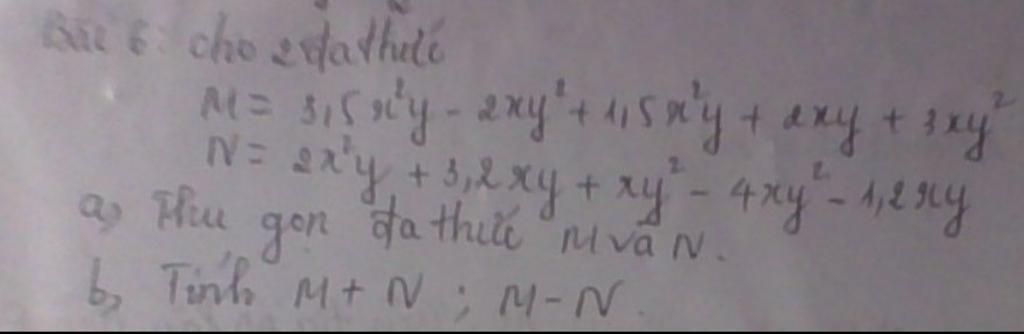 Bài 6: cho 2 đa thức
M = 3,5x²y - 2xy² + 1,5x²y + 2xy + 3xy²
N = 2x²y + 3,2xy + xy² - 4xy² - 1,2xy
a, Thu gọn đa thức M và N.
b, Tính M + N ; M - N.